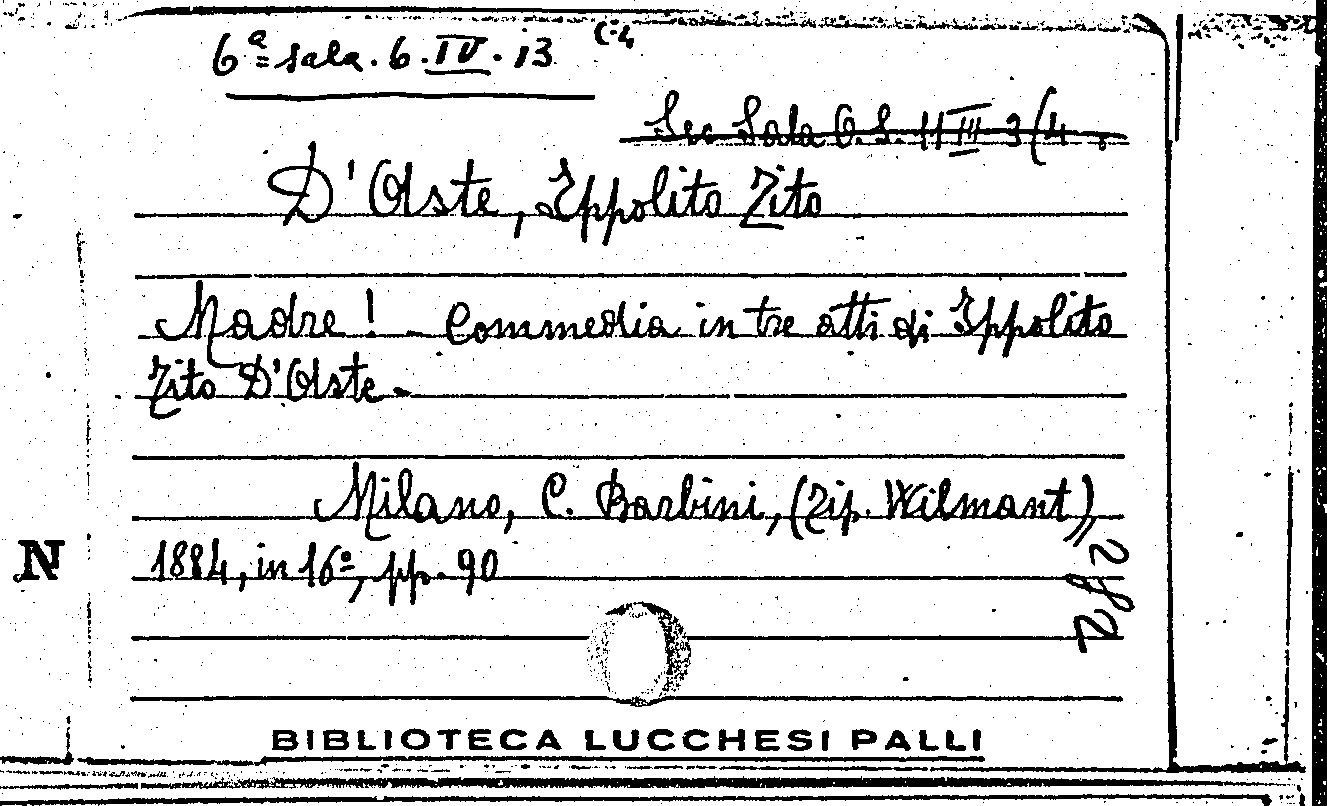 6ª sala. 6. IV. 13 (:4
Sec Sala O.S. 11 III 3(4.
D'Aste, Ippolito Tito
Madre! - Commedia in tre atti di Ippolito
Tito D'Aste -
Milano, C. Barbini, (Tip. Wilmant),
1884, in 16º, pp. 90
N
BIBLIOTECA LUCCHESI PALLI